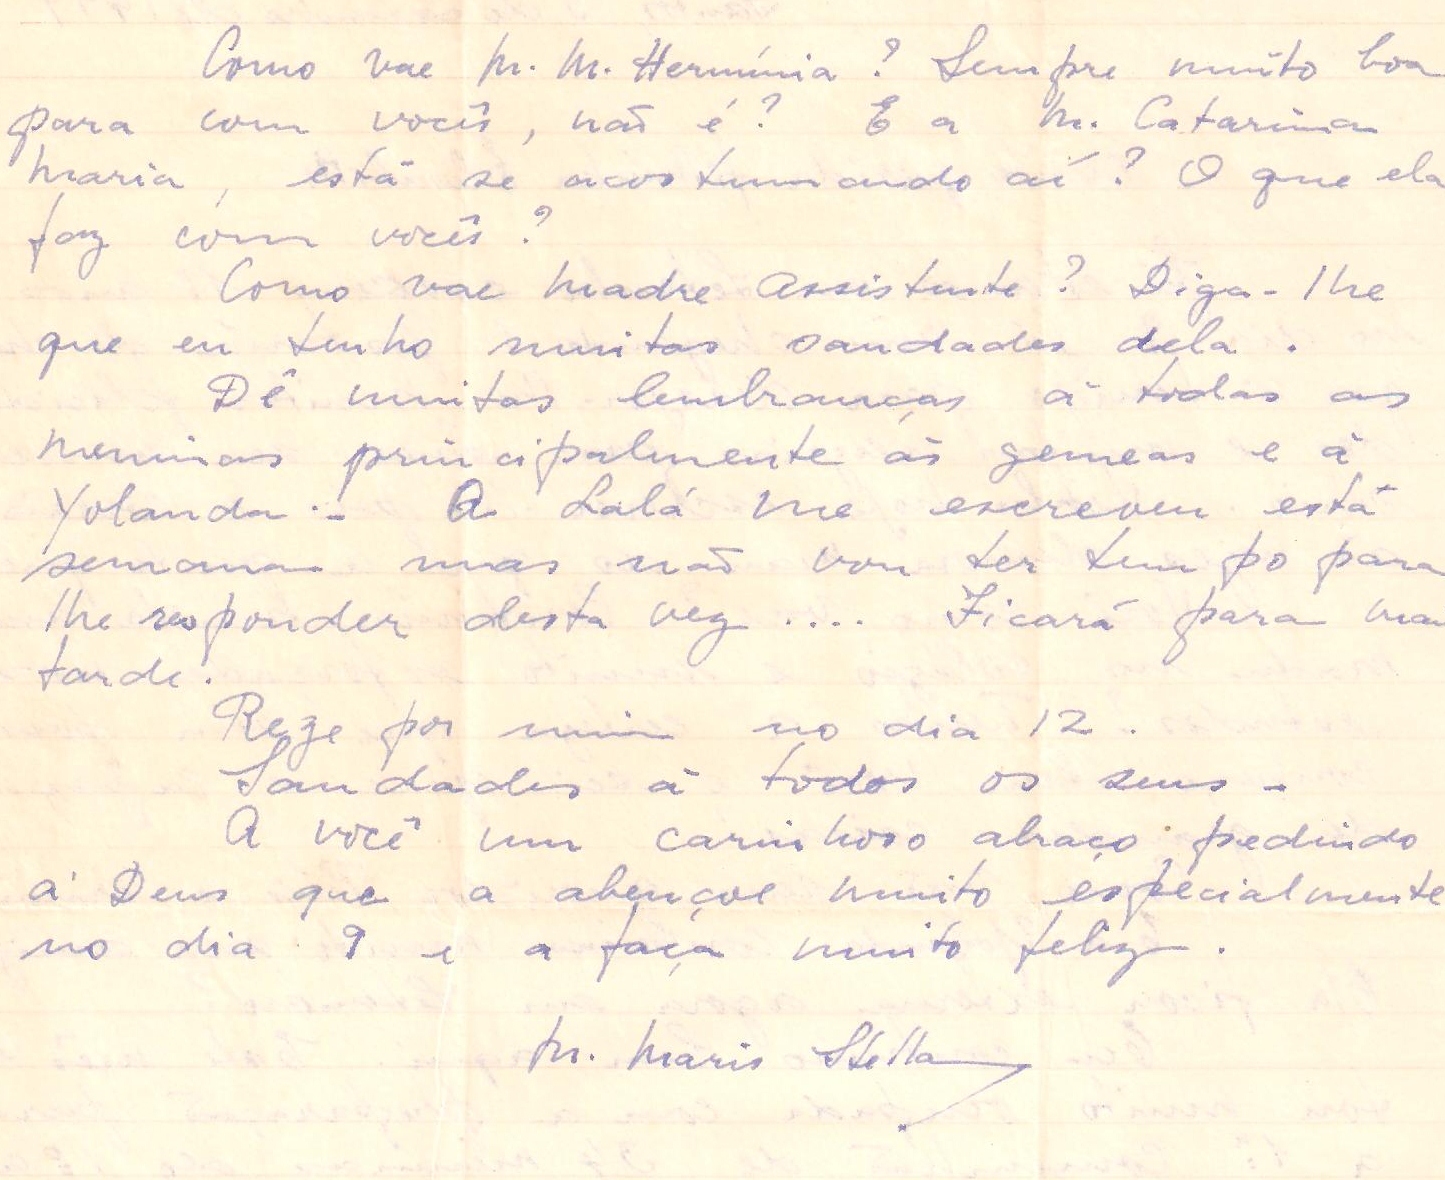 Como vae M. M. Hermínia? Sempre muito boa
para com vocês, não é? E a M. Catarina
Maria, está se acostumando aí? O que ela
faz com vocês?
Como vae Madre Assistente? Diga-lhe
que eu tenho muitas saudades dela.
Dê muitas lembranças à todas as
meninas principalmente às gemeas e à
Yolanda.- A Lalá me escreveu está
semana mas não vou ter tempo para
lhe responder desta vez.... Ficará para mai
tarde.
Reze por mim no dia 12.
Saudades à todos os seus -
A você um carinhoso abraço pedindo
a' Deus que a abençoe muito especialmente
no dia 9 e a faça muito feliz.
M. Maris Stella